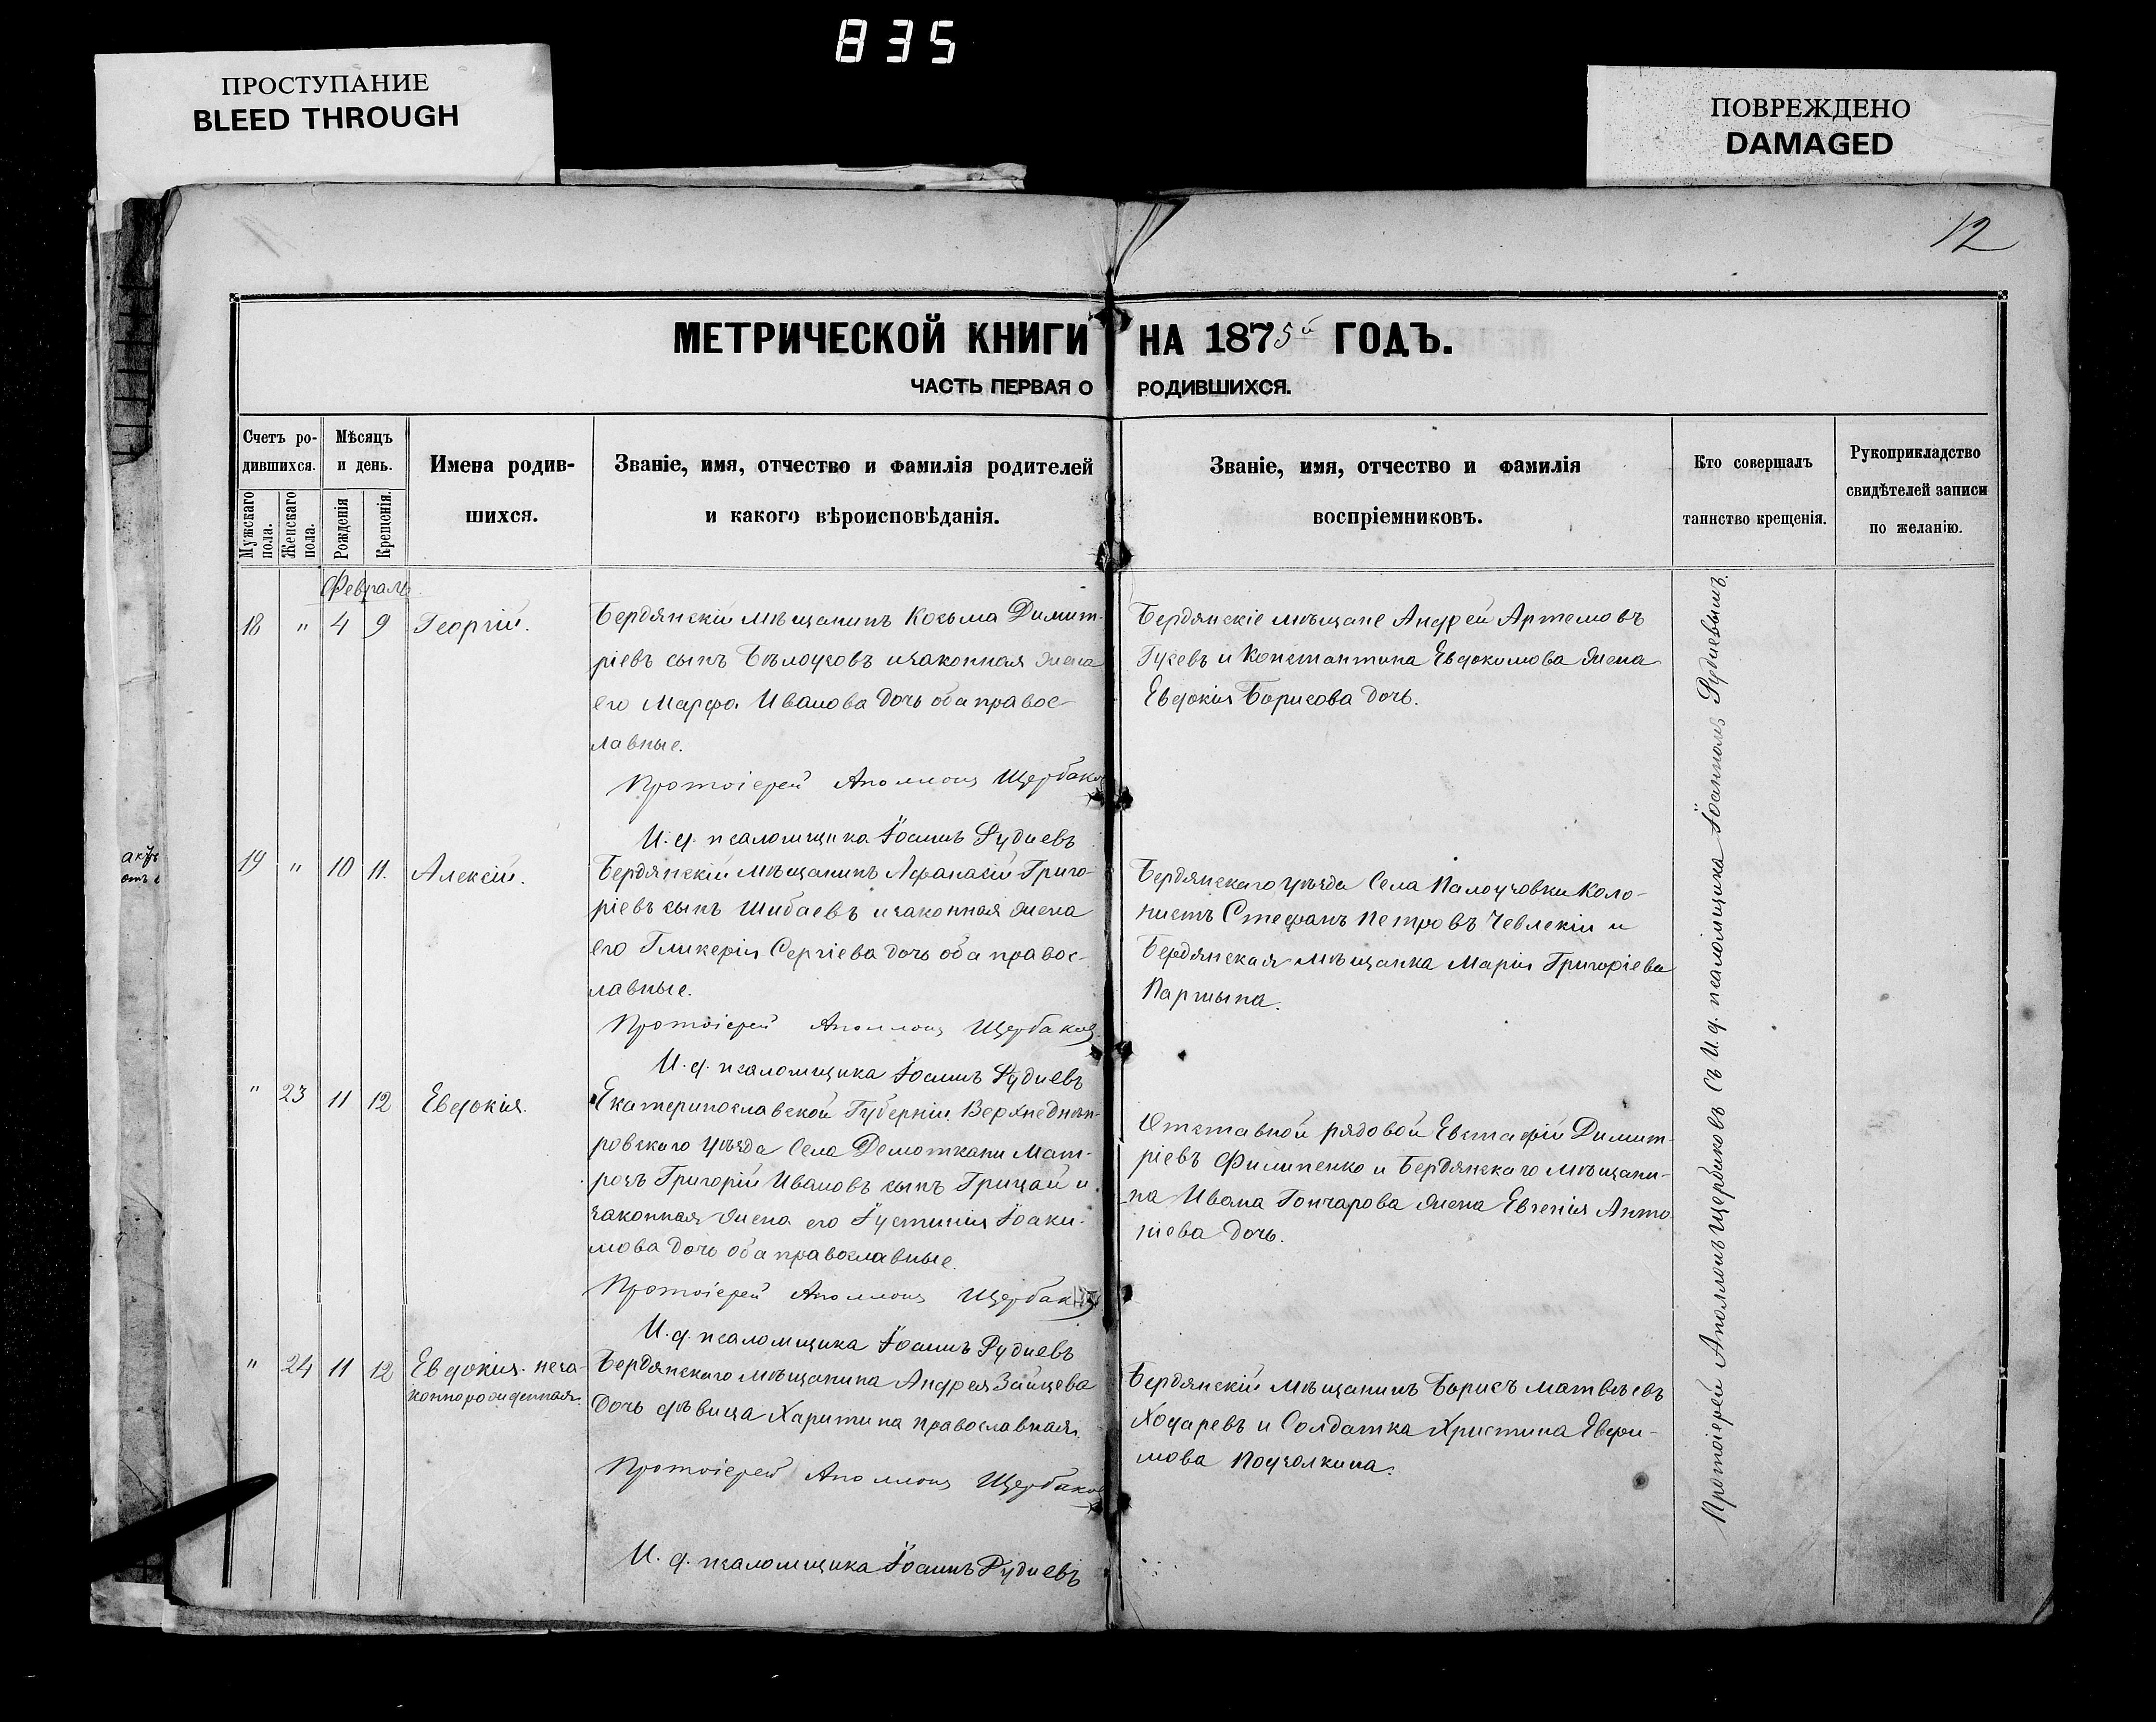 835
ПРОСТУПАНИЕ
BLEED THROUGH
ПОВРЕЖДЕНО
DAMAGED
12
МЕТРИЧЕСКОЙ КНИГИ НА 1875й ГОДЪ.
ЧАСТЬ ПЕРВАЯ О РОДИВШИХСЯ.
Счетъ ро-
дившихся.
Мужскаго пола.
Женскаго пола.
Мѣсяцъ
и день.
Рожденія
Крещенія.
Имена родив-
шихся.
Званіе, имя, отчество и фамилія родителей
и какого вѣроисповѣданія.
Званіе, имя, отчество и фамилія
воспріемниковъ.
Кто совершалъ
таинство крещенія.
Рукоприкладство
свидѣтелей записи
по желанію.
Февраль
18 " 4 9 Георгій.
Бердянскій мѣщанинъ Косьма Димит-
ріевъ сынъ Бѣлоусовъ и законная жена
его Марфа Иванова дочь оба правос-
лавные.
Протоіерей Аполлонъ Щербаковъ
И. д. псаломщика Іоаннъ Рудиевъ
Бердянскіе мѣщане Андрей Артемовъ
Гусевъ и Константина Евдокимова жена
Евдокія Борисова дочь.
19 " 10 11. Алексій.
Бердянскій мѣщанинъ Афанасій Григо-
ріевъ сынъ Шибаевъ и законная жена
его Гликерія Сергіева дочь оба правос-
лавные.
Протоіерей Аполлонъ Щербаковъ
И. д. псаломщика Іоаннъ Рудиевъ
Бердянскаго уѣзда Села Палоузовки Коло-
нистъ Стефанъ Петровъ Чевлекіи и
Бердянская мѣщанка Марія Григоріева
Паршына.
" 23 11 12 Евдокія.
Екатеринославской Губерніи Верхнеднѣп-
ровскаго уѣзда Села Демоткани Мат-
розъ Григорій Ивановъ сынъ Грицай и
законная жена его Іустинія Іоаки-
мова дочь оба православные.
Протоіерей Аполлонъ Щербаковъ
И. д. псаломщика Іоаннъ Рудиевъ
Отставной рядовой Евстафій Димит-
ріевъ Филипенко и Бердянскаго мѣщани-
на Ивана Гончарова жена Евгенія Анто-
ніева дочь.
" 24 11 12 Евдокія неза-
коннорожденная.
Бердянскаго мѣщанина Андрея Зайцева
дочь дѣвица Харитина православная.
Протоіерей Аполлонъ Щербаковъ
И. д. псаломщика Іоаннъ Рудиевъ
Бердянскій мѣщанинъ Борисъ Матвѣевъ
Ходаревъ и Солдатка Христина Евфи-
мова Подзолкина.
Протоіерей Аполлонъ Щербаковъ съ И. д. псаломщика Іоанномъ Рудиевымъ.